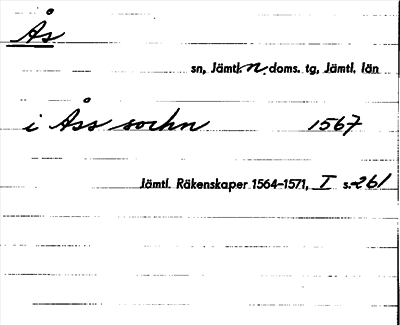 Ås
sn, Jämtl. n. doms. tg, Jämtl. län
i Åss sochn 1567
Jämtl. Räkenskaper 1564-1571, I s. 261